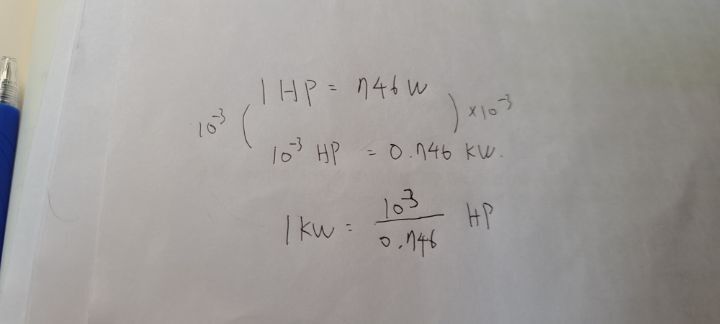 1 HP = 746 W
10⁻³ ( ) × 10⁻³
10⁻³ HP = 0.746 kW.
1 kW = 10³ / 0.746 HP